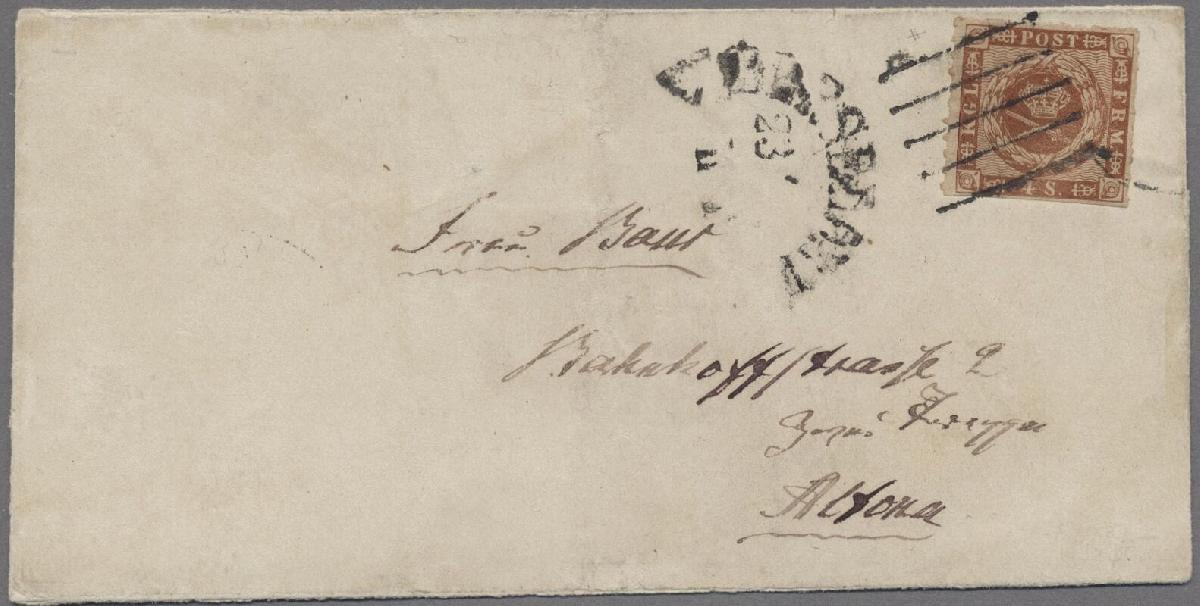 KGL POST FRM
4 S.
23
Frau Baur
Bahnhoffstrasse 2
Altona